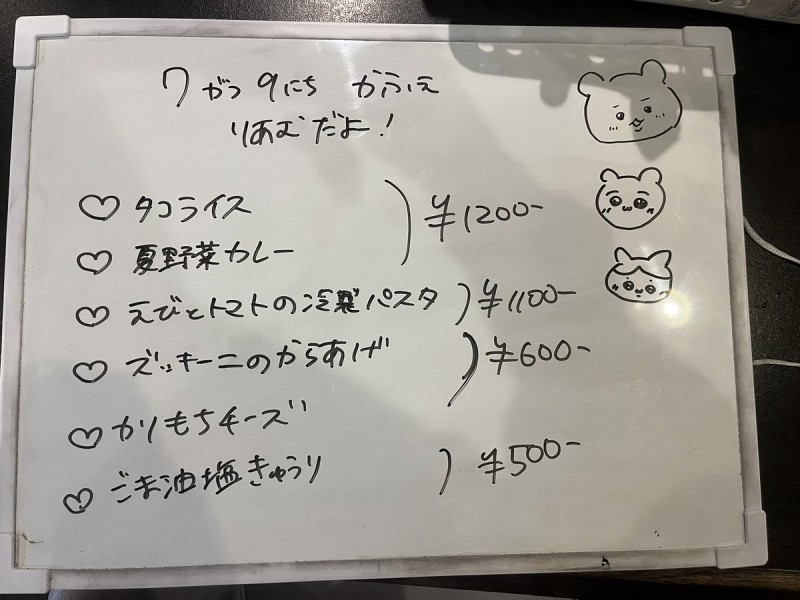 7がつ9にち かふぇ
りあむだよ!
♡ タコライス
♡ 夏野菜カレー ) ¥1200-
♡ えびとトマトの冷製パスタ ) ¥1100-
♡ ズッキーニのからあげ ) ¥600-
♡ かりもちチーズ
♡ ごま油塩きゅうり ) ¥500-